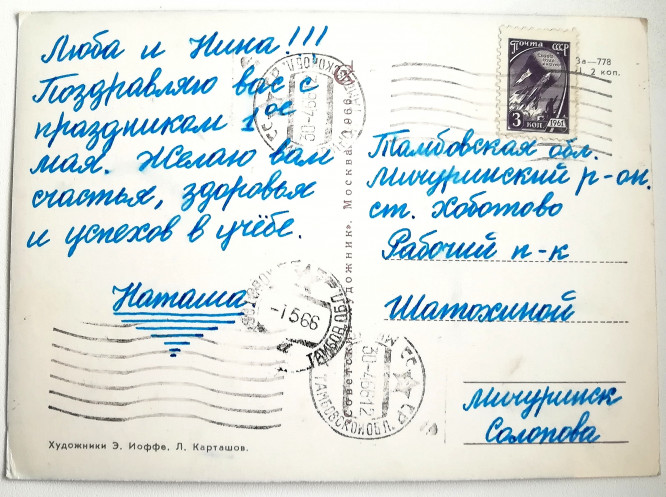 Люба и Нина!!!
Поздравляю вас с
праздником 1ое
мая. Желаю вам
счастья, здоровья
и успехов в учёбе.
Наташа
Художники Э. Иоффе, Л. Карташов.
Москва. 1966.
Почта СССР
3 коп.
1961
За—778
2 коп.
Тамбовская обл.
Мичуринский р-он.
ст. Хоботово
Рабочий п-к
Шатохиной
Мичуринск
Солопова
30-46612
-1566
ТАМБОВ.ОБЛ.
30-46612
ТАМБОВСКОЙ ОБЛ.